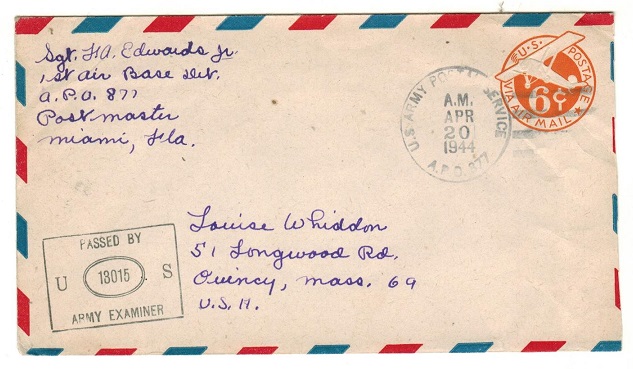 Sgt. H.A. Edwards Jr.
1st Air Base Det.
A.P.O. 877
Postmaster
Miami, Fla.
U.S. ARMY POSTAL SERVICE
A.M.
APR
20
1944
A.P.O. 877
U.S. POSTAGE
6¢
VIA AIR MAIL
Louise Whiddon
51 Longwood Rd.
Quincy, Mass. 69
U.S.A.
PASSED BY
U 13015 S
ARMY EXAMINER